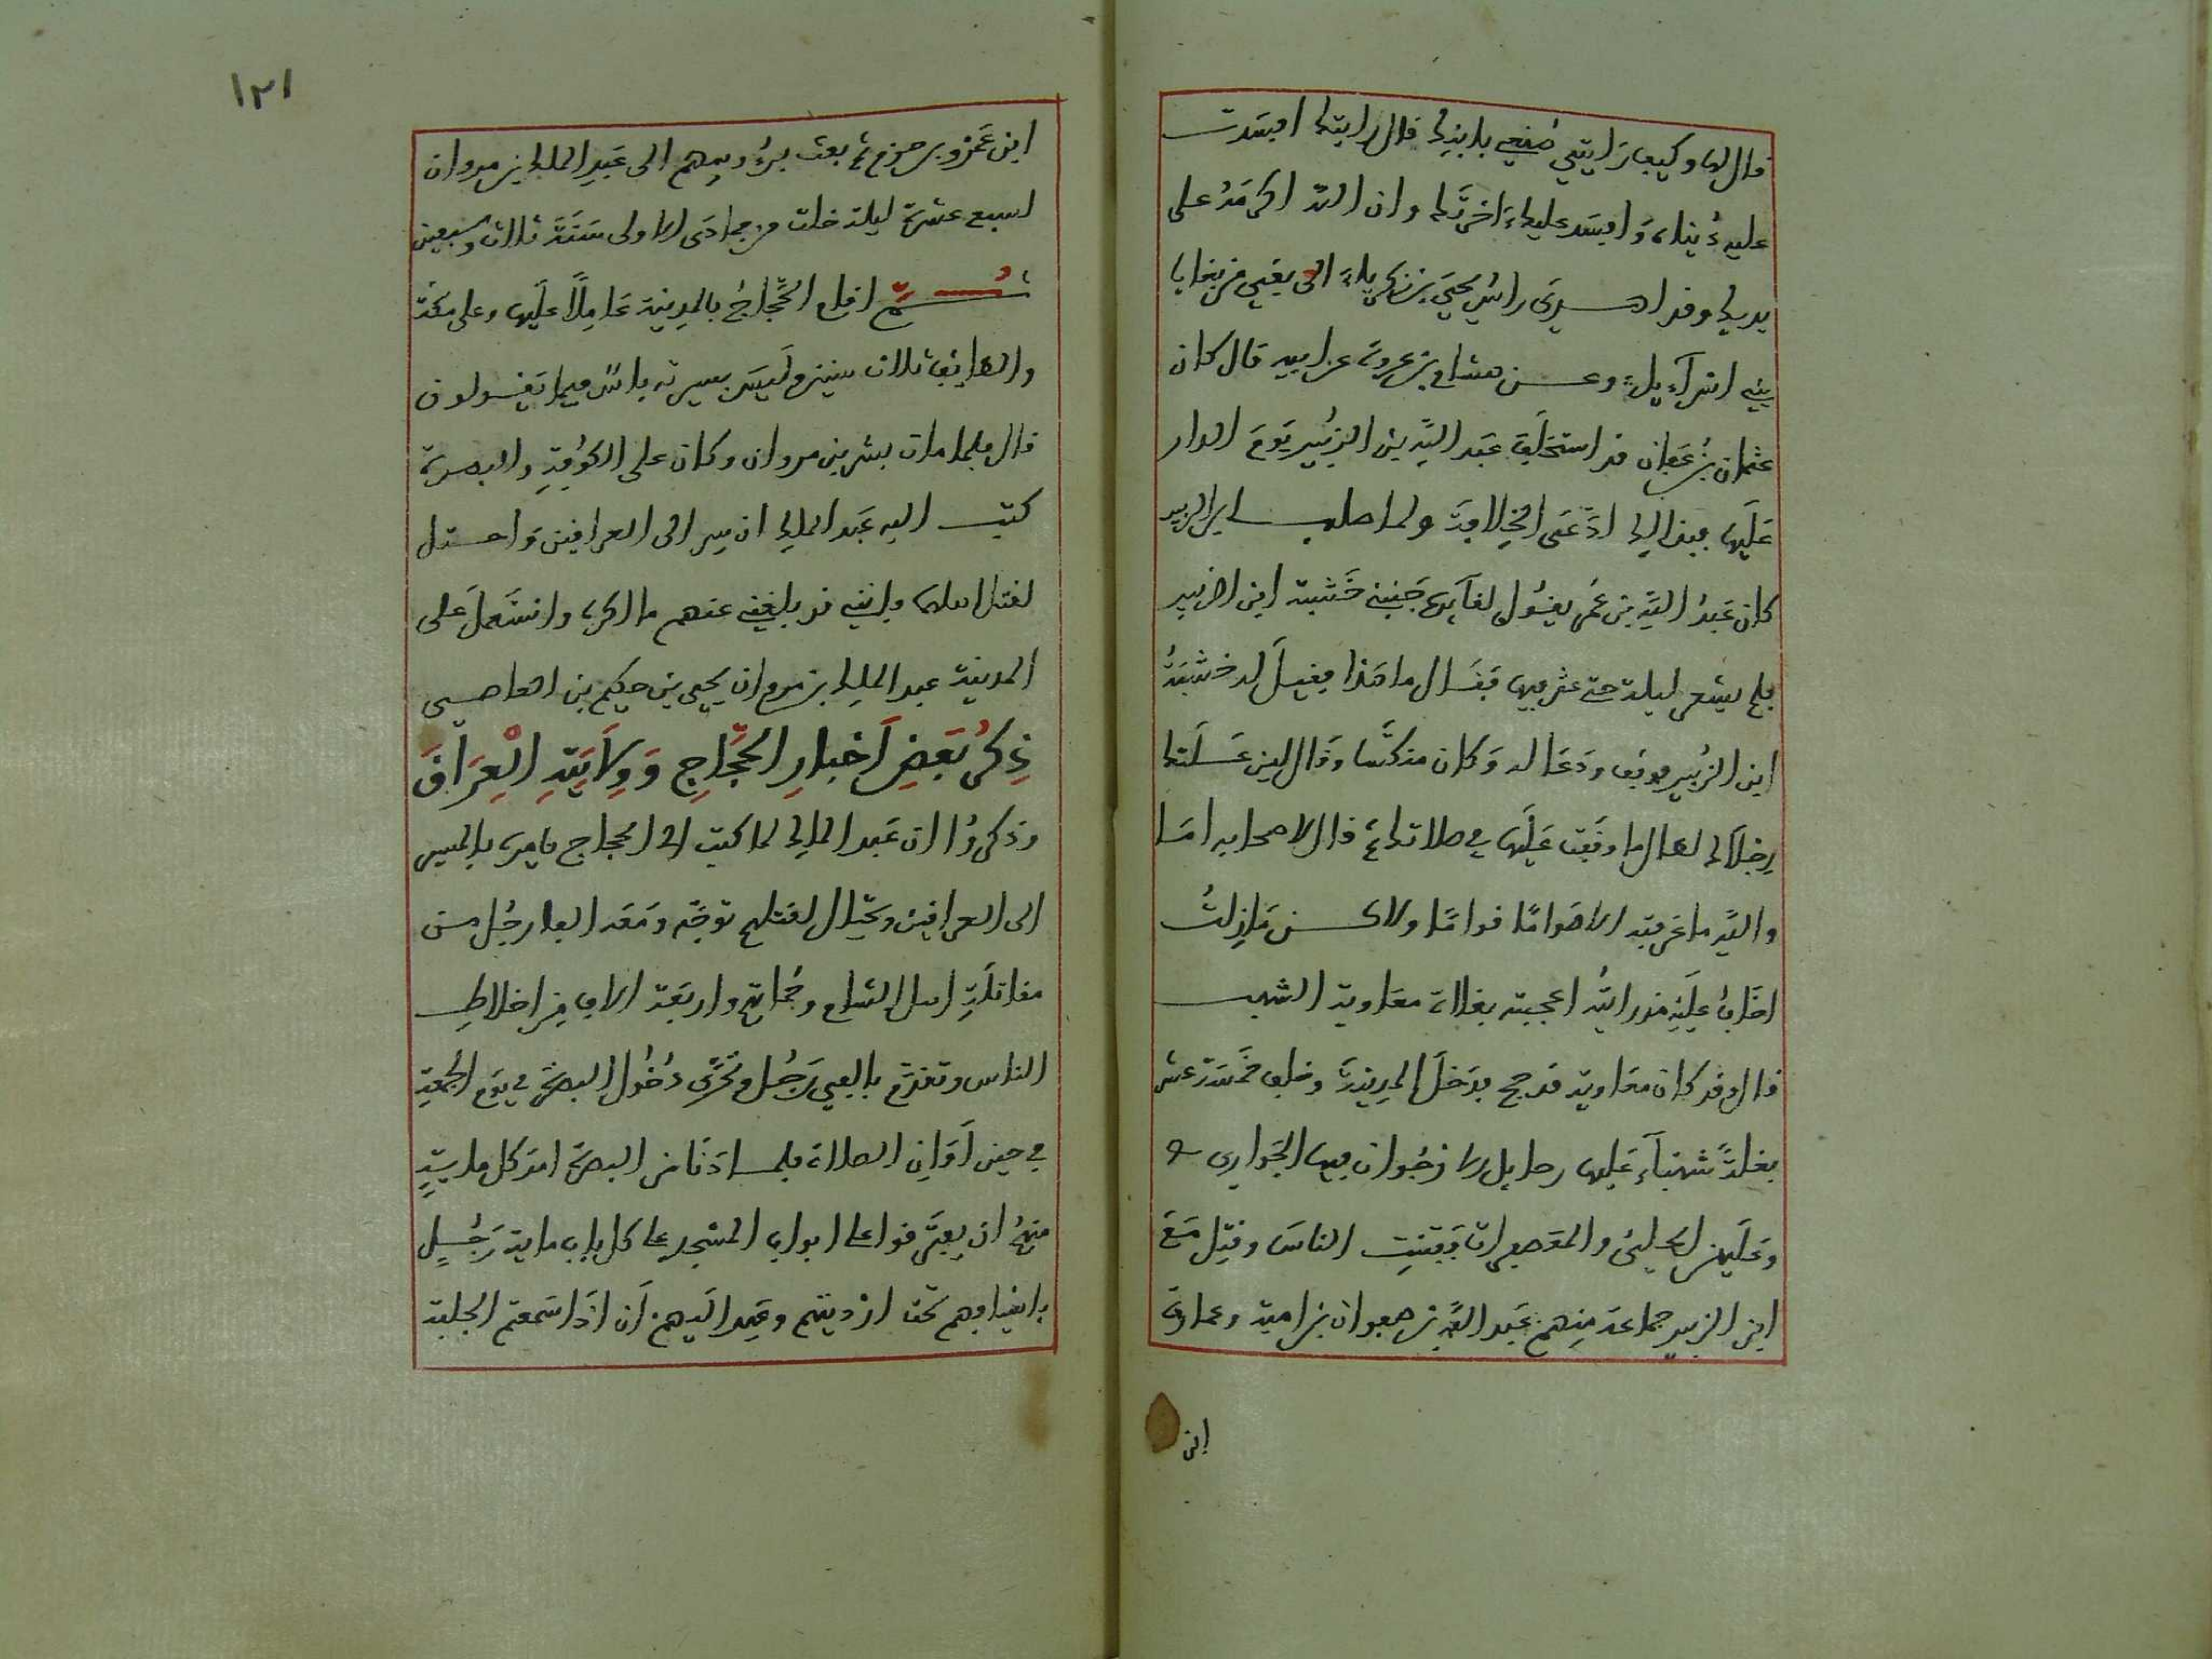 قال لها وكيف رايتي صنعي بابنك قال رايتك افسدت
عليه دنياه وافسد عليك اخرتك وان الله اكرمه على
يديك وقد اهدي راس يحيى بن زكرياء الى بغي من بغايا
بني اسرآءيل وعن هشام بن عروة عن ابيه قال كان
عثمان بن عفان قد استخلف عبد الله بن الزبير يوم الدار
عليها فبذالك ادعى الخلافة ولما صلب ابن الزبير
كان عبد الله بن عمر يقول لقآيده جنبني خشبة ابن الزبير
فلم يشعر ليلة حتى عثر فيها فقال ما هذا فقيل له خشبة
ابن الزبير فوقف ودعا له وكان منكسا وقال لين علتك
رجلاك لطال ما وقفت عليها في صلاتك ثم قال لاصحابه اما
والله ما عرفته الا صواما قواما ولاكن مازلت
اخاف عليه مذ رايته اعجبته بغلاة معاوية الشهب
قال وقد كان معاوية قد حج فدخل المدينة وخلفه خمسة عشر
بغلة شهبآء عليها رحايل الارجوان فيها الجواري
وعليهن الحلي والمعصفرات ففتنت الناس وقتل مع
ابن الزبير جماعة منهم عبد الله بن صفوان بن امية وعمارة
ابن
١٢١
ابن عمرو بن حزم ثم بعث برءوسهم الى عبد الملك بن مروان
لسبع عشرة ليلة خلت من جمادى الاولى سنة ثلاث وسبعين
ثم اقام الحجاج بالمدينة عاملا عليها وعلى مكة
والطايف ثلاث سنين وليس بسيرته باس فيما يقولون
قال فلما مات بشر بن مروان وكان على الكوفة والبصرة
كتب اليه عبد الملك ان سر الى العراقين واحتل
لقتل اهلها فانه قد بلغني عنهم ما اكره واستعمل على
المدينة عبد الملك بن مروان يحيى بن حكيم بن العاصي
ذكر بعض اخبار الحجاج وولايته العراق
وذكروا ان عبد الملك لما كتب الى الحجاج يامره بالمسير
الى العراقين ويحتال لقتلهم توجه ومعه الفا رجل من
مقاتلة اهل الشام وحماتهم واربعة الاف من اخلاط
الناس وتقدم بالفي رجل وتحرى دخول البصرة في يوم الجمعة
في حين اوان الصلاة فلما دنا من البصرة امر كل ماية
منهم ان يفترقوا على ابواب المسجد على كل باب ماية رجل
باسيافهم تحت ارديتهم وعهد اليهم ان اذا سمعتم الجلبة